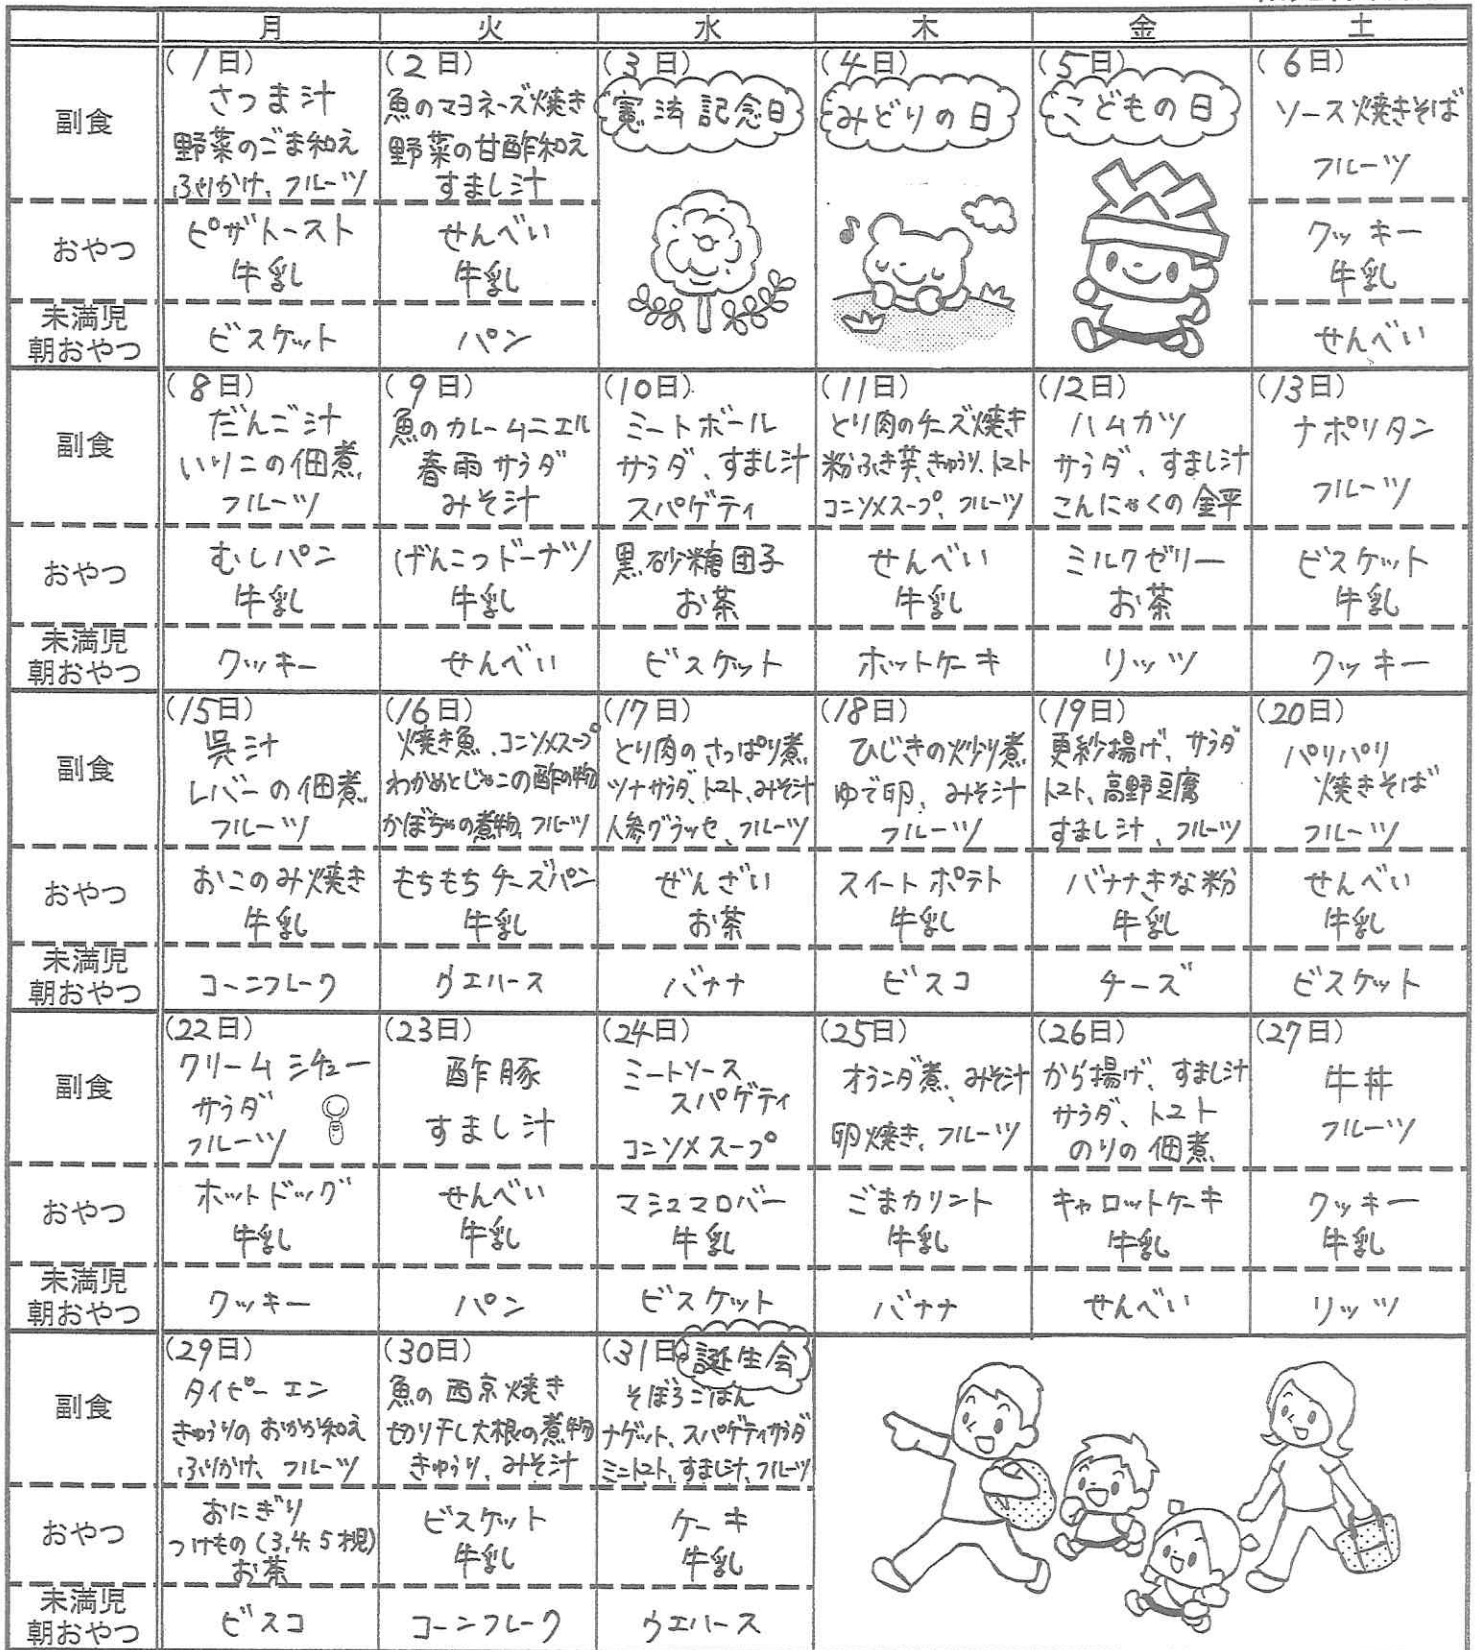 月 火 水 木 金 土
副食
(1日)
さつま汁
野菜のごま和え
ふりかけ、フルーツ
(2日)
魚のマヨネーズ焼き
野菜の甘酢和え
すまし汁
(3日)
憲法記念日
(4日)
みどりの日
(5日)
こどもの日
(6日)
ソース焼きそば
フルーツ
おやつ
ピザトースト
牛乳
せんべい
牛乳
クッキー
牛乳
未満児
朝おやつ
ビスケット
パン
せんべい
副食
(8日)
だんご汁
いりこの佃煮、
フルーツ
(9日)
魚のカレームニエル
春雨サラダ
みそ汁
(10日)
ミートボール
サラダ、すまし汁
スパゲティ
(11日)
とり肉のチーズ焼き
粉ふき芋、きゅうり、トマト
コンソメスープ、フルーツ
(12日)
ハムカツ
サラダ、すまし汁
こんにゃくの金平
(13日)
ナポリタン
フルーツ
おやつ
むしパン
牛乳
げんこつドーナツ
牛乳
黒砂糖団子
お茶
せんべい
牛乳
ミルクゼリー
お茶
ビスケット
牛乳
未満児
朝おやつ
クッキー
せんべい
ビスケット
ホットケーキ
リッツ
クッキー
副食
(15日)
呉汁
レバーの佃煮、
フルーツ
(16日)
焼き魚、コンソメスープ
わかめとじゃこの酢の物
かぼちゃの煮物、フルーツ
(17日)
とり肉のさっぱり煮、
ツナサラダ、トマト、みそ汁
人参グラッセ、フルーツ
(18日)
ひじきの炒り煮
ゆで卵、みそ汁
フルーツ
(19日)
更紗揚げ、サラダ
トマト、高野豆腐
すまし汁、フルーツ
(20日)
パリパリ
焼きそば
フルーツ
おやつ
おこのみ焼き
牛乳
もちもちチーズパン
牛乳
ぜんざい
お茶
スイートポテト
牛乳
バナナきな粉
牛乳
せんべい
牛乳
未満児
朝おやつ
コーンフレーク
ウエハース
バナナ
ビスコ
チーズ
ビスケット
副食
(22日)
クリームシチュー
サラダ
フルーツ
(23日)
酢豚
すまし汁
(24日)
ミートソース
スパゲティ
コンソメスープ
(25日)
オランダ煮、みそ汁
卵焼き、フルーツ
(26日)
から揚げ、すまし汁
サラダ、トマト
のりの佃煮
(27日)
牛丼
フルーツ
おやつ
ホットドッグ
牛乳
せんべい
牛乳
マシュマロバー
牛乳
ごまカリント
牛乳
キャロットケーキ
牛乳
クッキー
牛乳
未満児
朝おやつ
クッキー
パン
ビスケット
バナナ
せんべい
リッツ
副食
(29日)
タイピーエン
きゅうりのおかか和え
ふりかけ、フルーツ
(30日)
魚の西京焼き
切り干し大根の煮物
きゅうり、みそ汁
(31日)
誕生会
そぼろごはん
ナゲット、スパゲティサラダ
ミニトマト、すまし汁、フルーツ
おやつ
おにぎり
つけもの(3,4,5才児)
お茶
ビスケット
牛乳
ケーキ
牛乳
未満児
朝おやつ
ビスコ
コーンフレーク
ウエハース